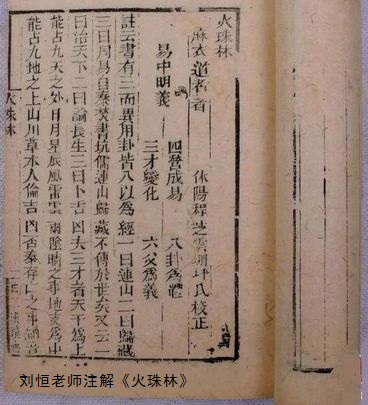 火珠林
麻衣道者著 休陽程芝雲珊坪氏校正
四營成易 八卦為體
易中明義
三才變化 六爻為義
註云書有三而異用卦皆八以為經一曰連山二曰歸藏
三曰周易自秦焚書坑儒連山歸藏不傳於世矣又云一
曰治天下二曰論長生三曰卜吉凶夫三才者天為上
能占九天之外日月星辰風雷雲雨陰晴之事地為中
能占九地之上山川草木人倫吉凶否泰存亡之事
火珠林
刘恒老师注解《火珠林》